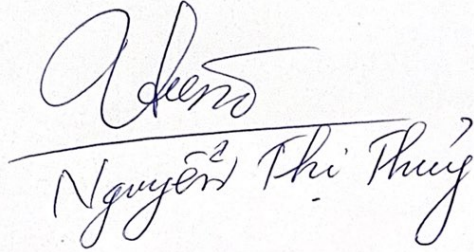 Nguyễn Thị Thuỷ